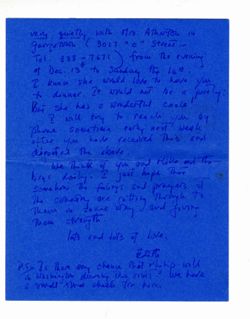 very quietly with Mrs. Atherton in
Georgetown (3027 "O" Street -
Tel. 338-7671) from the evening
of Dec. 13th to Sunday the 16th.
I know she would love to have you
to dinner. It would not be a party.
But she has a wonderful cook!
I will try to reach you by
phone sometime early next week
after you have received this and
the
We think of you and and the
boys daily. I just hope that
somehow the and prayers of
the country are getting through to
them in some way and giving
them strength.
Lots and lots of love,
Edith
P.S. Is there any chance that Philip will
be Washington during this visit? We have
a small Xmas check for him.